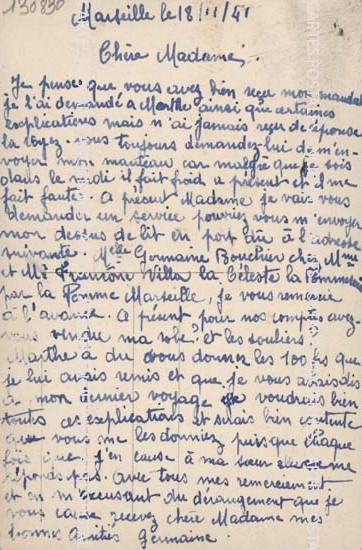 130830
Marseille le 18/11/41
Chère Madame,
Je pense que vous avez bien reçu mon mandat
je l'ai demandé a Marthe ainsi que certaines
explications mais n'ai jamais reçu de réponse
la voyez-vous toujours demandez-lui de m'en-
voyer mon manteau car malgré que je sois
dans le midi il fait froid a présent et il me
fait faute. A présent Madame je vais vous
demander un service pourriez vous m'envoyer
mon dessus de lit en port dû à l'adresse
suivante. Melle Germaine Bouchier chez Mme
et Mr Villa la Céleste la Pommeraie
par la Pomme Marseille, je vous remercie
à l'avance. A présent pour nos comptes avez-
vous vendu ma robe et les souliers
Marthe a du vous donner les 100 frs que
je lui avais remis et que je vous avais dis
à mon dernier voyage je voudrais bien
toutes ces explications et serais bien contente
que vous me les donniez puisque chaque
fois que j'en cause à ma sœur elle ne me
réponds pas. Avec tous mes remerciements
et en m'excusant du dérangement que je
vous cause recevez chère Madame mes
bonnes Amitiés Germaine